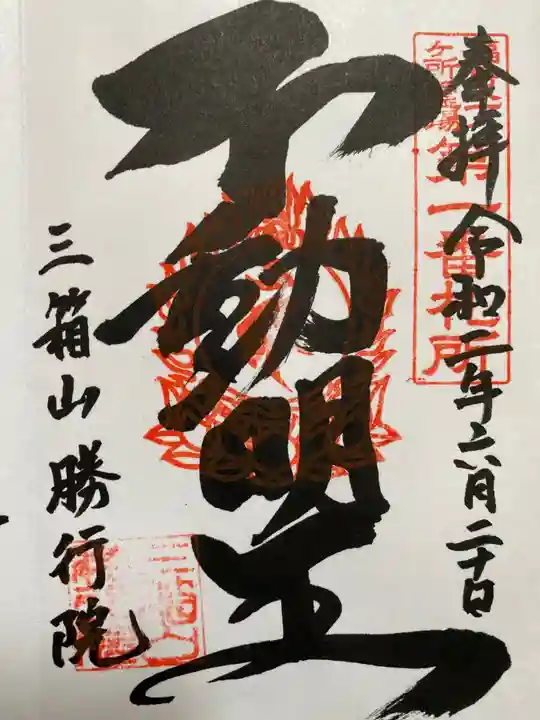 奉拝 令和二年六月二十日
第一番札所
不動明王
三箱山 勝行院